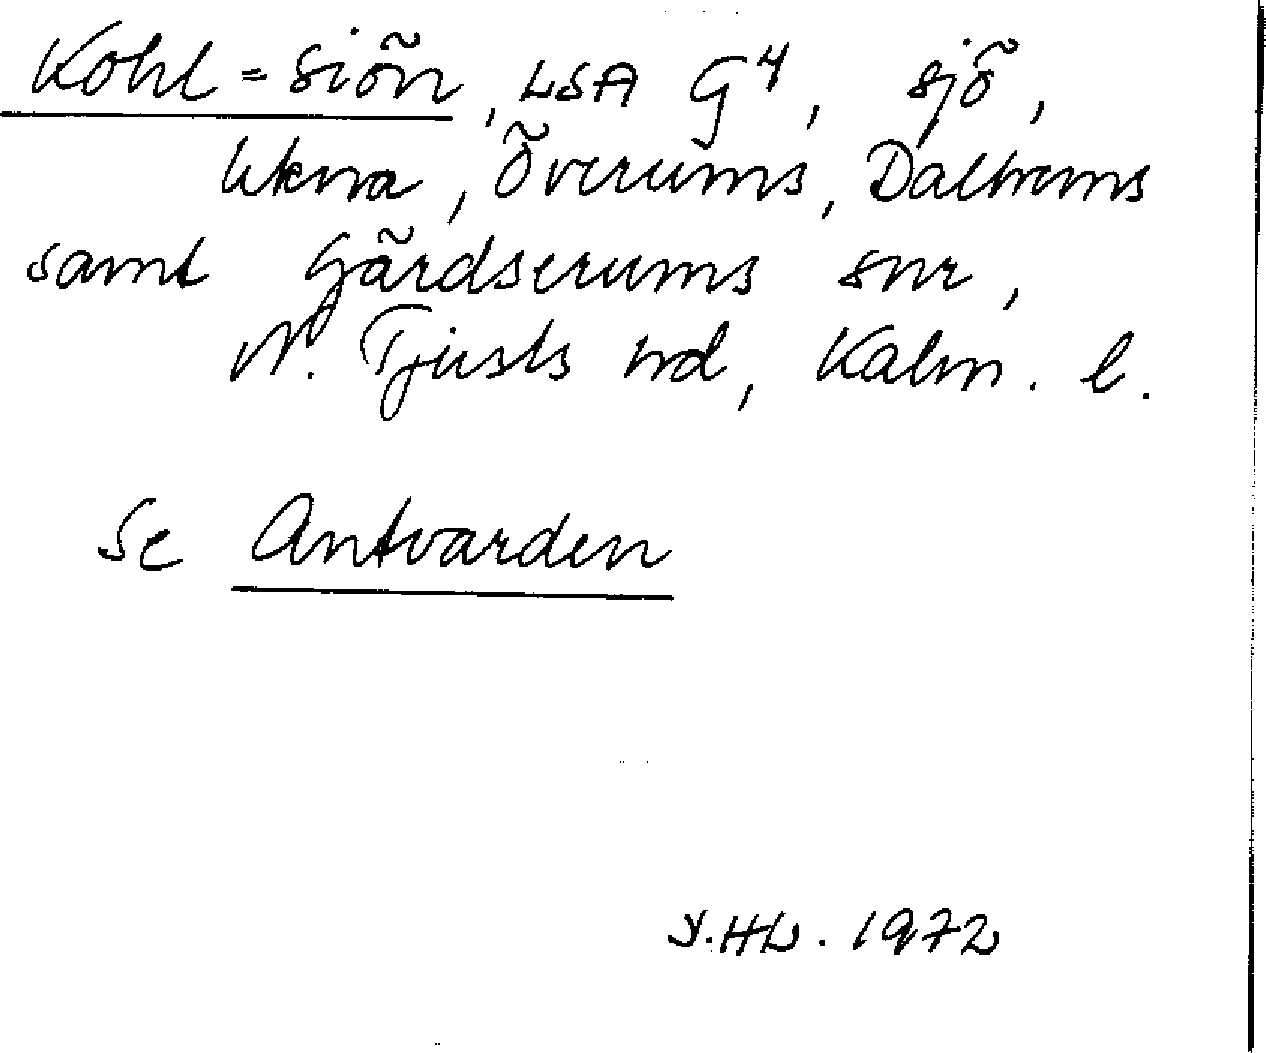 Kohl=siön, LSA G4, sjö,
Ukna, Överums, Dalhems
samt Gärdserums snr,
N. Tjusts hd, Kalm. l.
Se Antvarden
Y.HL. 1972